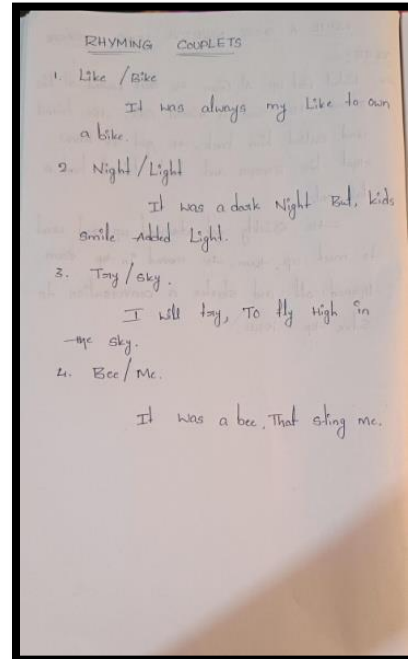 RHYMING COUPLETS
1. Like / Bike
It was always my Like to own
a bike.
2. Night / Light
It was a dark Night But, kids
smile Added Light.
3. Try / sky.
I will try, To fly High in
the sky.
4. Bee / Me.
It was a bee, That sting me.